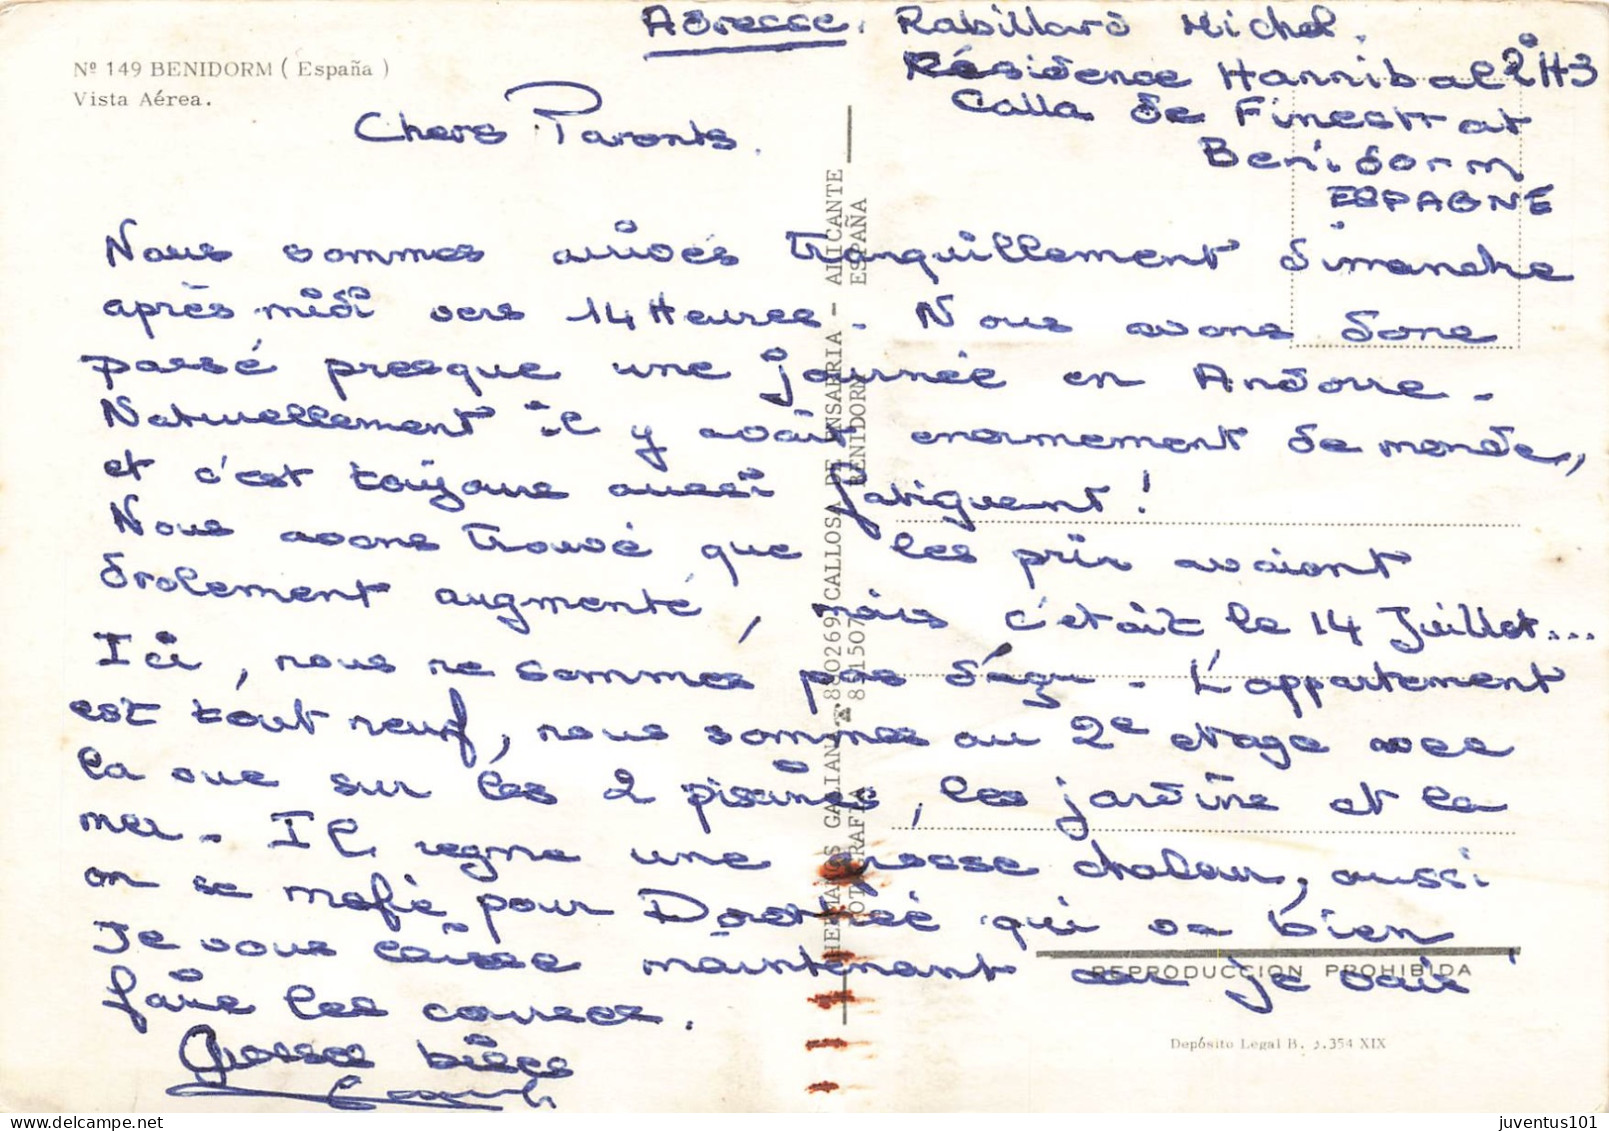 Nº 149 BENIDORM ( España )
Vista Aérea.
Adresse. Rabillard Michel.
Résidence Hannibal 2º H3
Calla de Finestrat
Benidorm
ESPAGNE
Chers Parents.
Nous sommes arrivés tranquillement dimanche
après midi vers 14 Heures. Nous avons donc
passé presque une journée en Andorre.
Naturellement il y avait enormement de monde,
et c'est toujours aussi fatiguant !
Nous avons trouvé que les prix avaient
drolement augmenté, mais c'était le 14 Juillet...
Ici, nous ne sommes pas déçu. L'appartement
est tout neuf, nous sommes au 2e etage avec
la vue sur les 2 piscines, les jardins et la
mer. Il regne une grosse chaleur, aussi
on se mefie pour Dorothée qui va bien
Je vous laisse maintenant car je vais
faire les courses.
Grosses bises
HERMANOS GALIANA 880269 CALLOSA DE ENSARRIA - ALICANTE
FOTOGRAFIA 851507 BENIDORM ESPAÑA
REPRODUCCION PROHIBIDA
Depósito Legal B. .354 XIX
juventus101